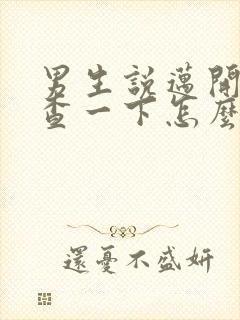 男生說邁開
查一下怎麼
還憂不盛妍